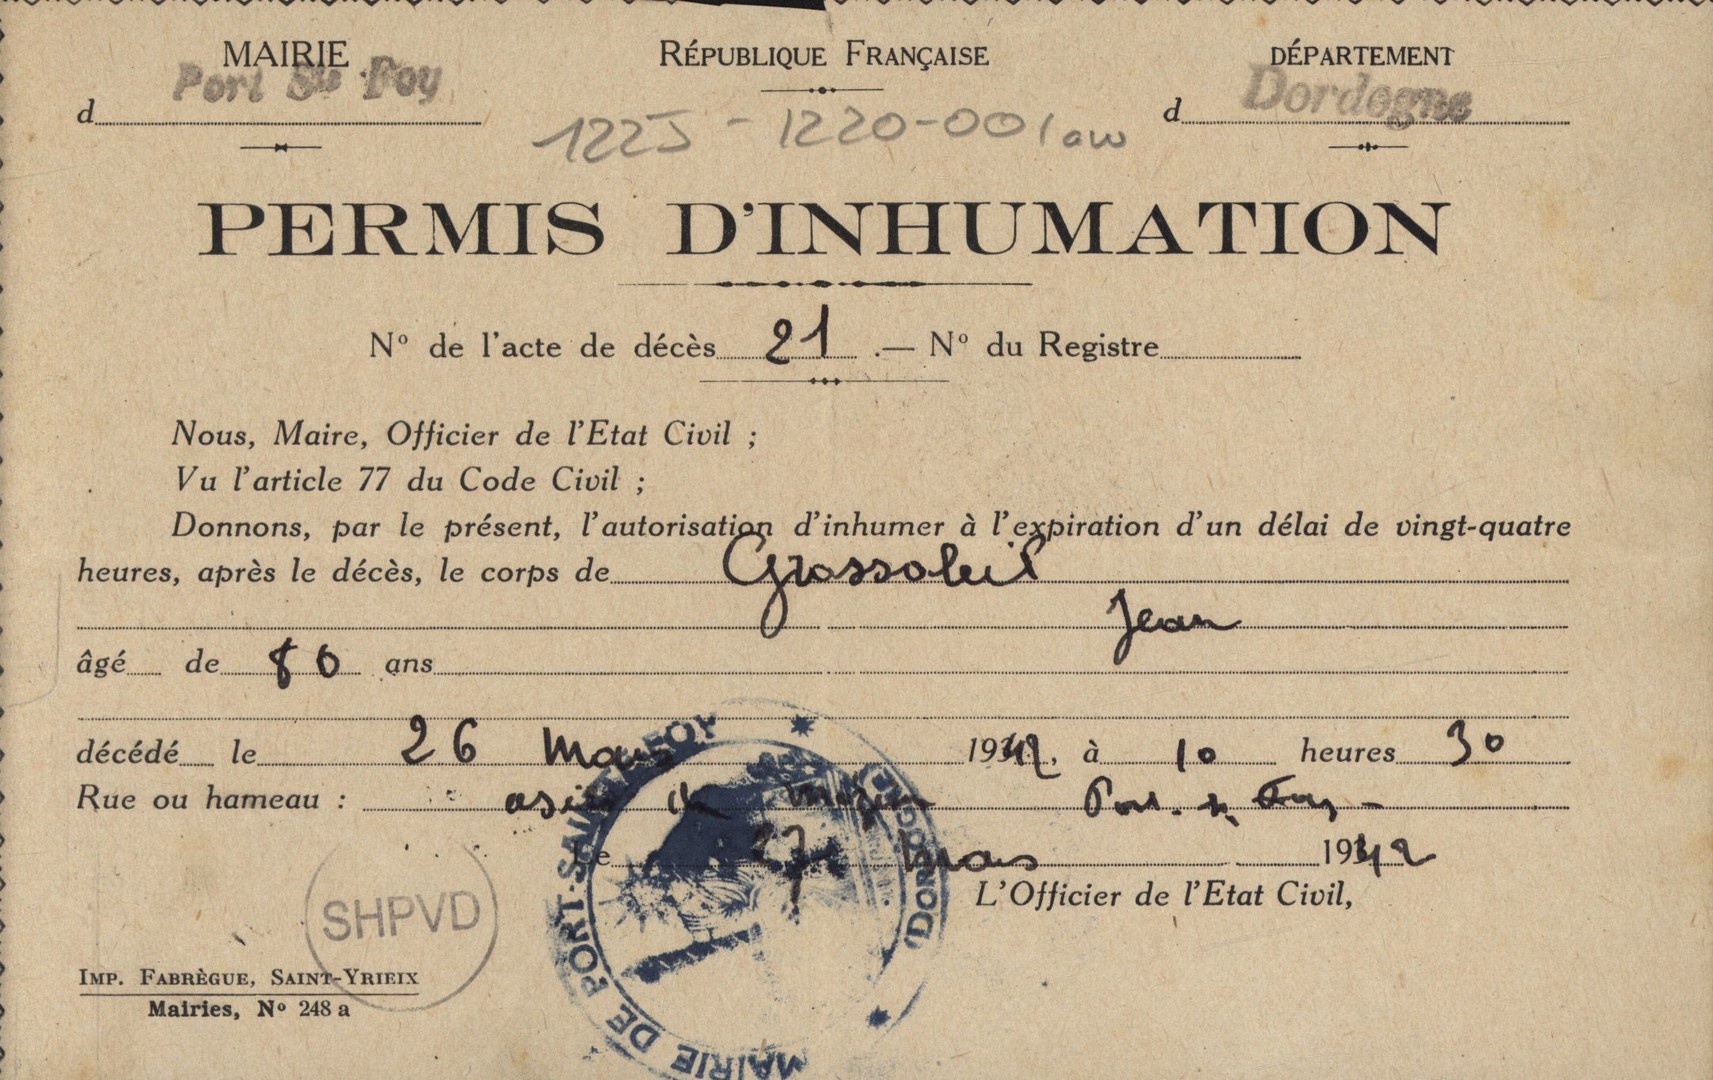 MAIRIE
RÉPUBLIQUE FRANÇAISE
DÉPARTEMENT
d Port Ste Foy
d Dordogne
122J - 1220-001 aw
PERMIS D'INHUMATION
N° de l'acte de décès 21 .— N° du Registre
Nous, Maire, Officier de l'Etat Civil ;
Vu l'article 77 du Code Civil ;
Donnons, par le présent, l'autorisation d'inhumer à l'expiration d'un délai de vingt-quatre
heures, après le décès, le corps de Grossoleil
Jean
âgé de 80 ans
décédé le 26 Mars 1942, à 10 heures 30
Rue ou hameau : Port. Ste Foy -
Le 27 Mars 1942
L'Officier de l'Etat Civil,
MAIRIE DE PORT-SAINTE-FOY (DORDOGNE)
SHPVD
IMP. FABRÈGUE, SAINT-YRIEIX
Mairies, N° 248 a